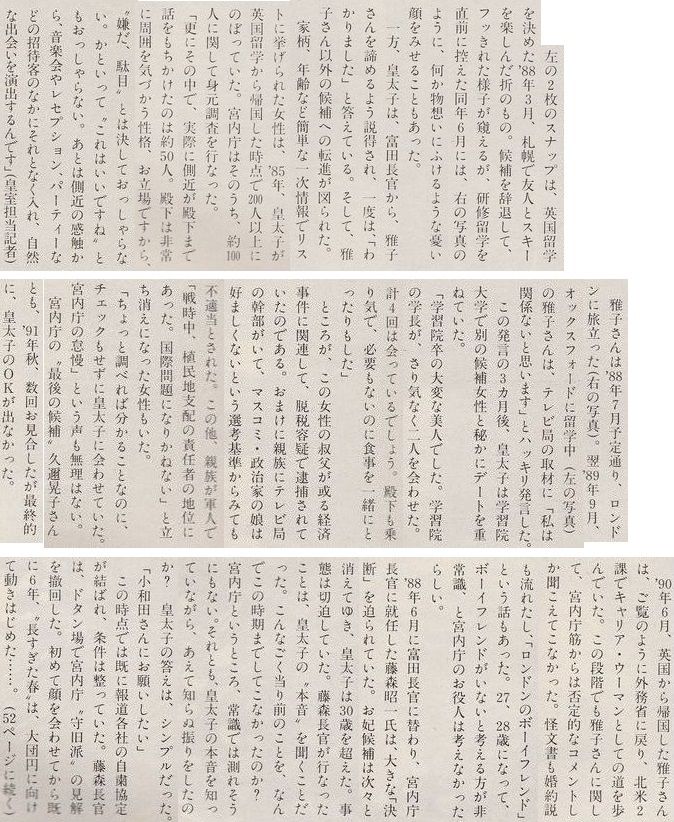 左の2枚のスナップは、英国留学
を決めた'88年3月、札幌で友人とスキー
を楽しんだ折のもの。候補を辞退して、
フッきれた様子が窺えるが、研修留学を
直前に控えた同年6月には、右の写真の
ように、何か物想いにふけるような憂い
顔をみせることもあった。
一方、皇太子は、富田長官から、雅子
さんを諦めるよう説得され、一度は、「わ
かりました」と答えている。そして、雅
子さん以外の候補への転進が図られた。
家柄、年齢など簡単な一次情報でリス
トに挙げられた女性は、'85年、皇太子が
英国留学から帰国した時点で200人以上に
のぼっていた。宮内庁はそのうち、約100
人に関して身元調査を行なった。
「更にその中で、実際に側近が殿下まで
話をもちかけたのは約50人。殿下は非常
に周囲を気づかう性格、お立場ですから、
〝嫌だ、駄目〟とは決しておっしゃらな
い。かといって〝これはいいですね〟と
もおっしゃらない。あとは側近の感触か
ら、音楽会やレセプション、パーティーな
どの招待客のなかにそれとなく入れ、自然
な出会いを演出するんです」(皇室担当記者)
雅子さんは'88年7月予定通り、ロンド
ンに旅立った(右の写真)。翌'89年9月、
オックスフォードに留学中(左の写真)
の雅子さんは、テレビ局の取材に「私は
関係ないと思います」とハッキリ発言した。
この発言の3カ月後、皇太子は学習院
大学で別の候補女性と秘かにデートを重
ねていた。
「学習院卒の大変な美人でした。学習院
の学長が、さり気なく二人を会わせた。
計4回は会っているでしょう。殿下も乗
り気で、必要もないのに食事を一緒にと
ったりもした」
ところが、この女性の叔父が或る経済
事件に関連して、脱税容疑で逮捕されて
いたのである。おまけに親族にテレビ局
の幹部がいて、マスコミ・政治家の娘は
好ましくないという選考基準からみても
不適当とされた。この他、親族が軍人で
「戦時中、植民地支配の責任者の地位に
あった。国際問題になりかねない」と立
ち消えになった女性もいた。
「ちょっと調べれば分かることなのに、
チェックもせずに皇太子に会わせていた。
宮内庁の怠慢」という声も無理はない。
宮内庁の〝最後の候補〟久邇晃子さん
とも、'91年秋、数回お見合したが最終的
に、皇太子のOKが出なかった。
'90年6月、英国から帰国した雅子さん
は、ご覧のように外務省に戻り、北米2
課でキャリア・ウーマンとしての道を歩
んでいた。この段階でも雅子さんに関し
て、宮内庁筋からは否定的なコメントし
か聞こえてこなかった。怪文書も婚約説
も流れたし、「ロンドンのボーイフレンド」
という話もあった。27、28歳になって、
ボーイフレンドがいないと考える方が非
常識、と宮内庁のお役人は考えなかった
らしい。
'88年6月に富田長官に替わり、宮内庁
長官に就任した藤森昭一氏は、大きな「決
断」を迫られていた。お妃候補は次々と
消えてゆき、皇太子は30歳を超えた。事
態は切迫していた。藤森長官が行なった
ことは、皇太子の〝本音〟を聞くことだ
った。こんなごく当り前のことを、なん
でこの時期までしてこなかったのか?
宮内庁というところ、常識では測れそう
にもない。それとも、皇太子の本音を知っ
ていながら、あえて知らぬ振りをしたの
か? 皇太子の答えは、シンプルだった。
「小和田さんにお願いしたい」
この時点では既に報道各社の自粛協定
が結ばれ、条件は整っていた。藤森長官
は、ドタン場で宮内庁〝守旧派〟の見解
を撤回した。初めて顔を会わせてから既
に6年、〝長すぎた春〟は、大団円に向け
て動きはじめた……。(52ページに続く)